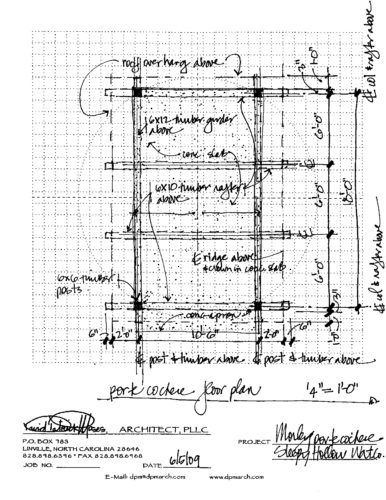 roof overhang above
2"
1'-0"
℄ col & rafter above
6x12 timber girder
above
conc slab
6'-0"
6x10 timber rafters
above
6'-0"
18'-0"
℄ ridge above
& crown in conc slab
6x6 timber
posts
6'-0"
3"
conc apron
6"
2'-0"
10'-6"
2'-0"
6"
1'-0"
℄ col & rafter above
℄ post & timber above
℄ post & timber above
porte cochere floor plan
1/4" = 1'-0"
ARCHITECT, PLLC
P.O. BOX 783
LINVILLE, NORTH CAROLINA 28646
828.898.6396 * FAX 828.898.6968
JOB NO.
DATE 6/5/09
PROJECT Morley porte cochere
Sleepy Hollow
E-Mail: dpm@dpmarch.com www.dpmarch.com